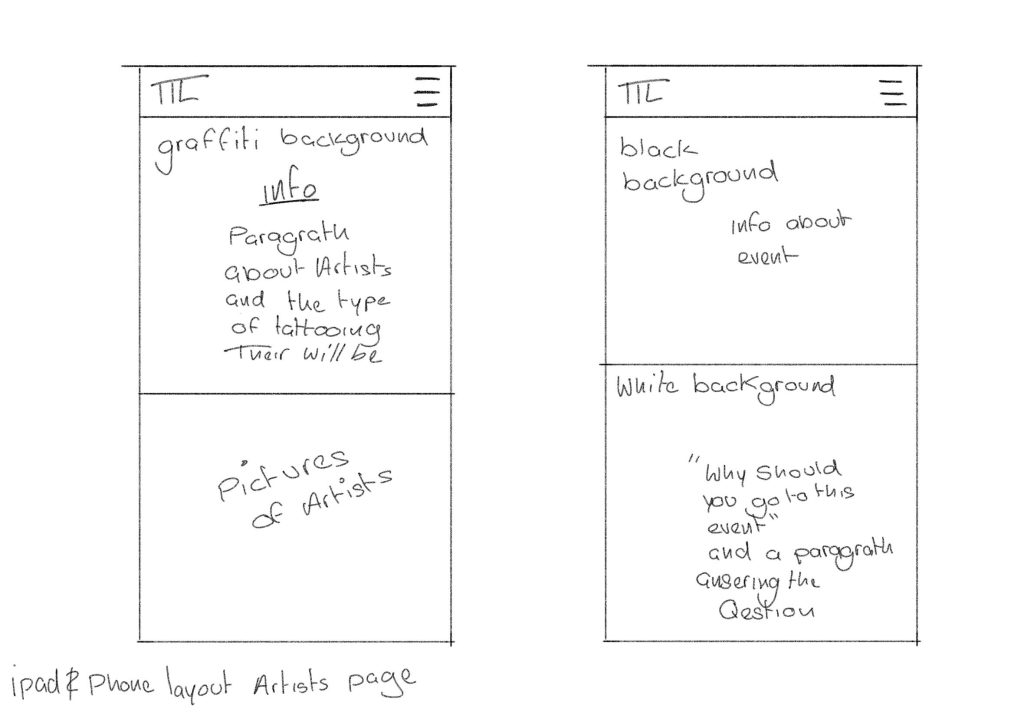 TTL
graffiti background
info
Paragrath
about Artists
and the type
of tattooing
Their will be
Pictures
of Artists
TTL
black
background
info about
event
White background
"Why should
you go to this
event"
and a paragrath
ansering the
Qestion
ipad & Phone layout Artists page